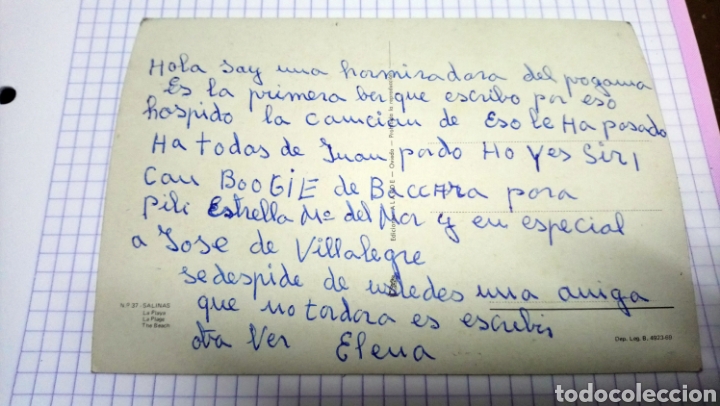 Hola say una hormiradora del pogama
Es la primera ber que escribo por eso
hospido la camcian de Eso le Ha pasado
Ha todas de Juan pardo Ho Yes Sir I
Can BOOGIE de BaccHra para
pili Estrella Mª del Mar y en especial
a Jose de Villalegre
se despide de ustedes una amiga
que no tardara es escribir
otra Ver Elena
N.º 27 - SALINAS
La Playa
La Plage
The Beach
Dep. Leg. B. 4923-60
todocoleccion